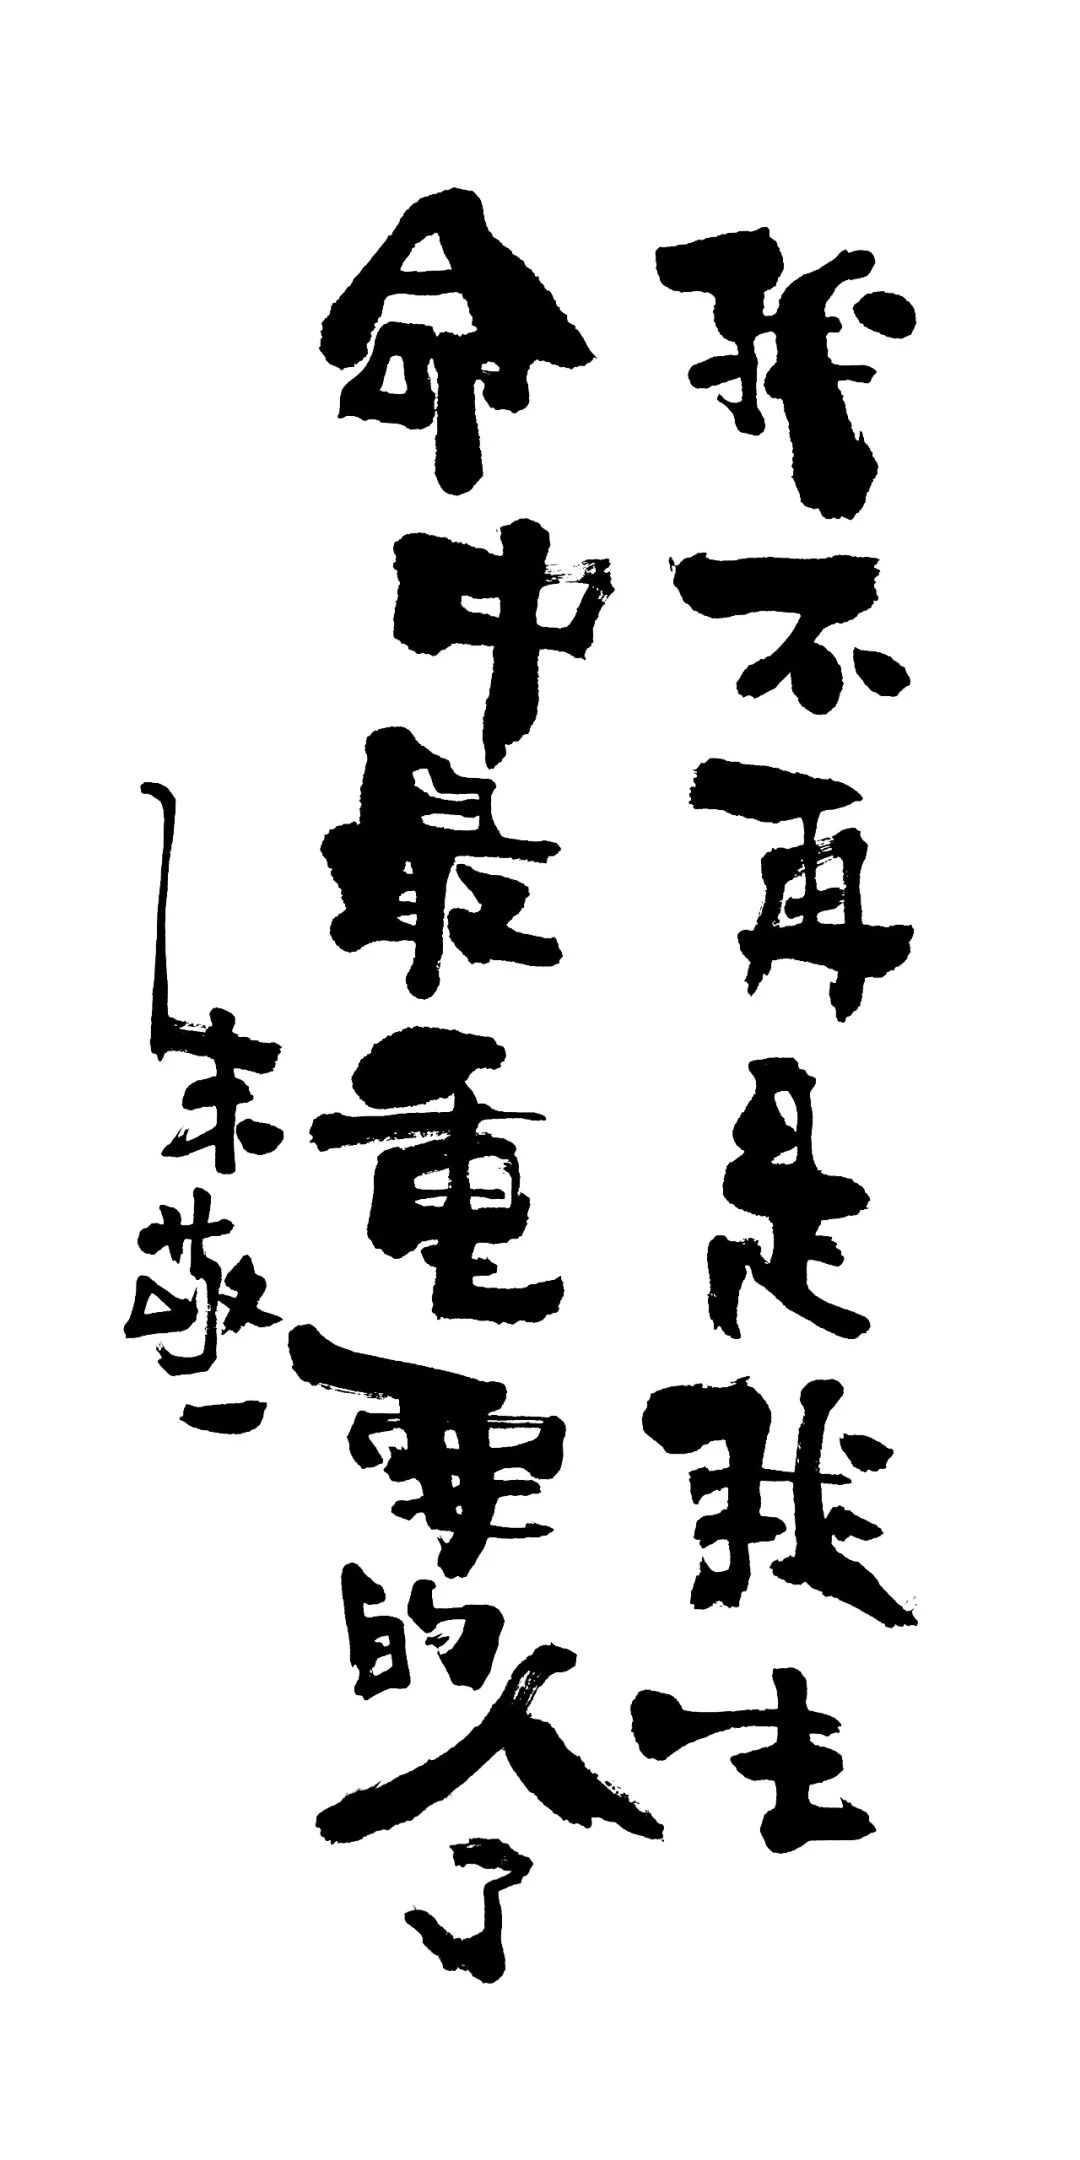 我不再是我生
命中最重要的人了
朱敬一